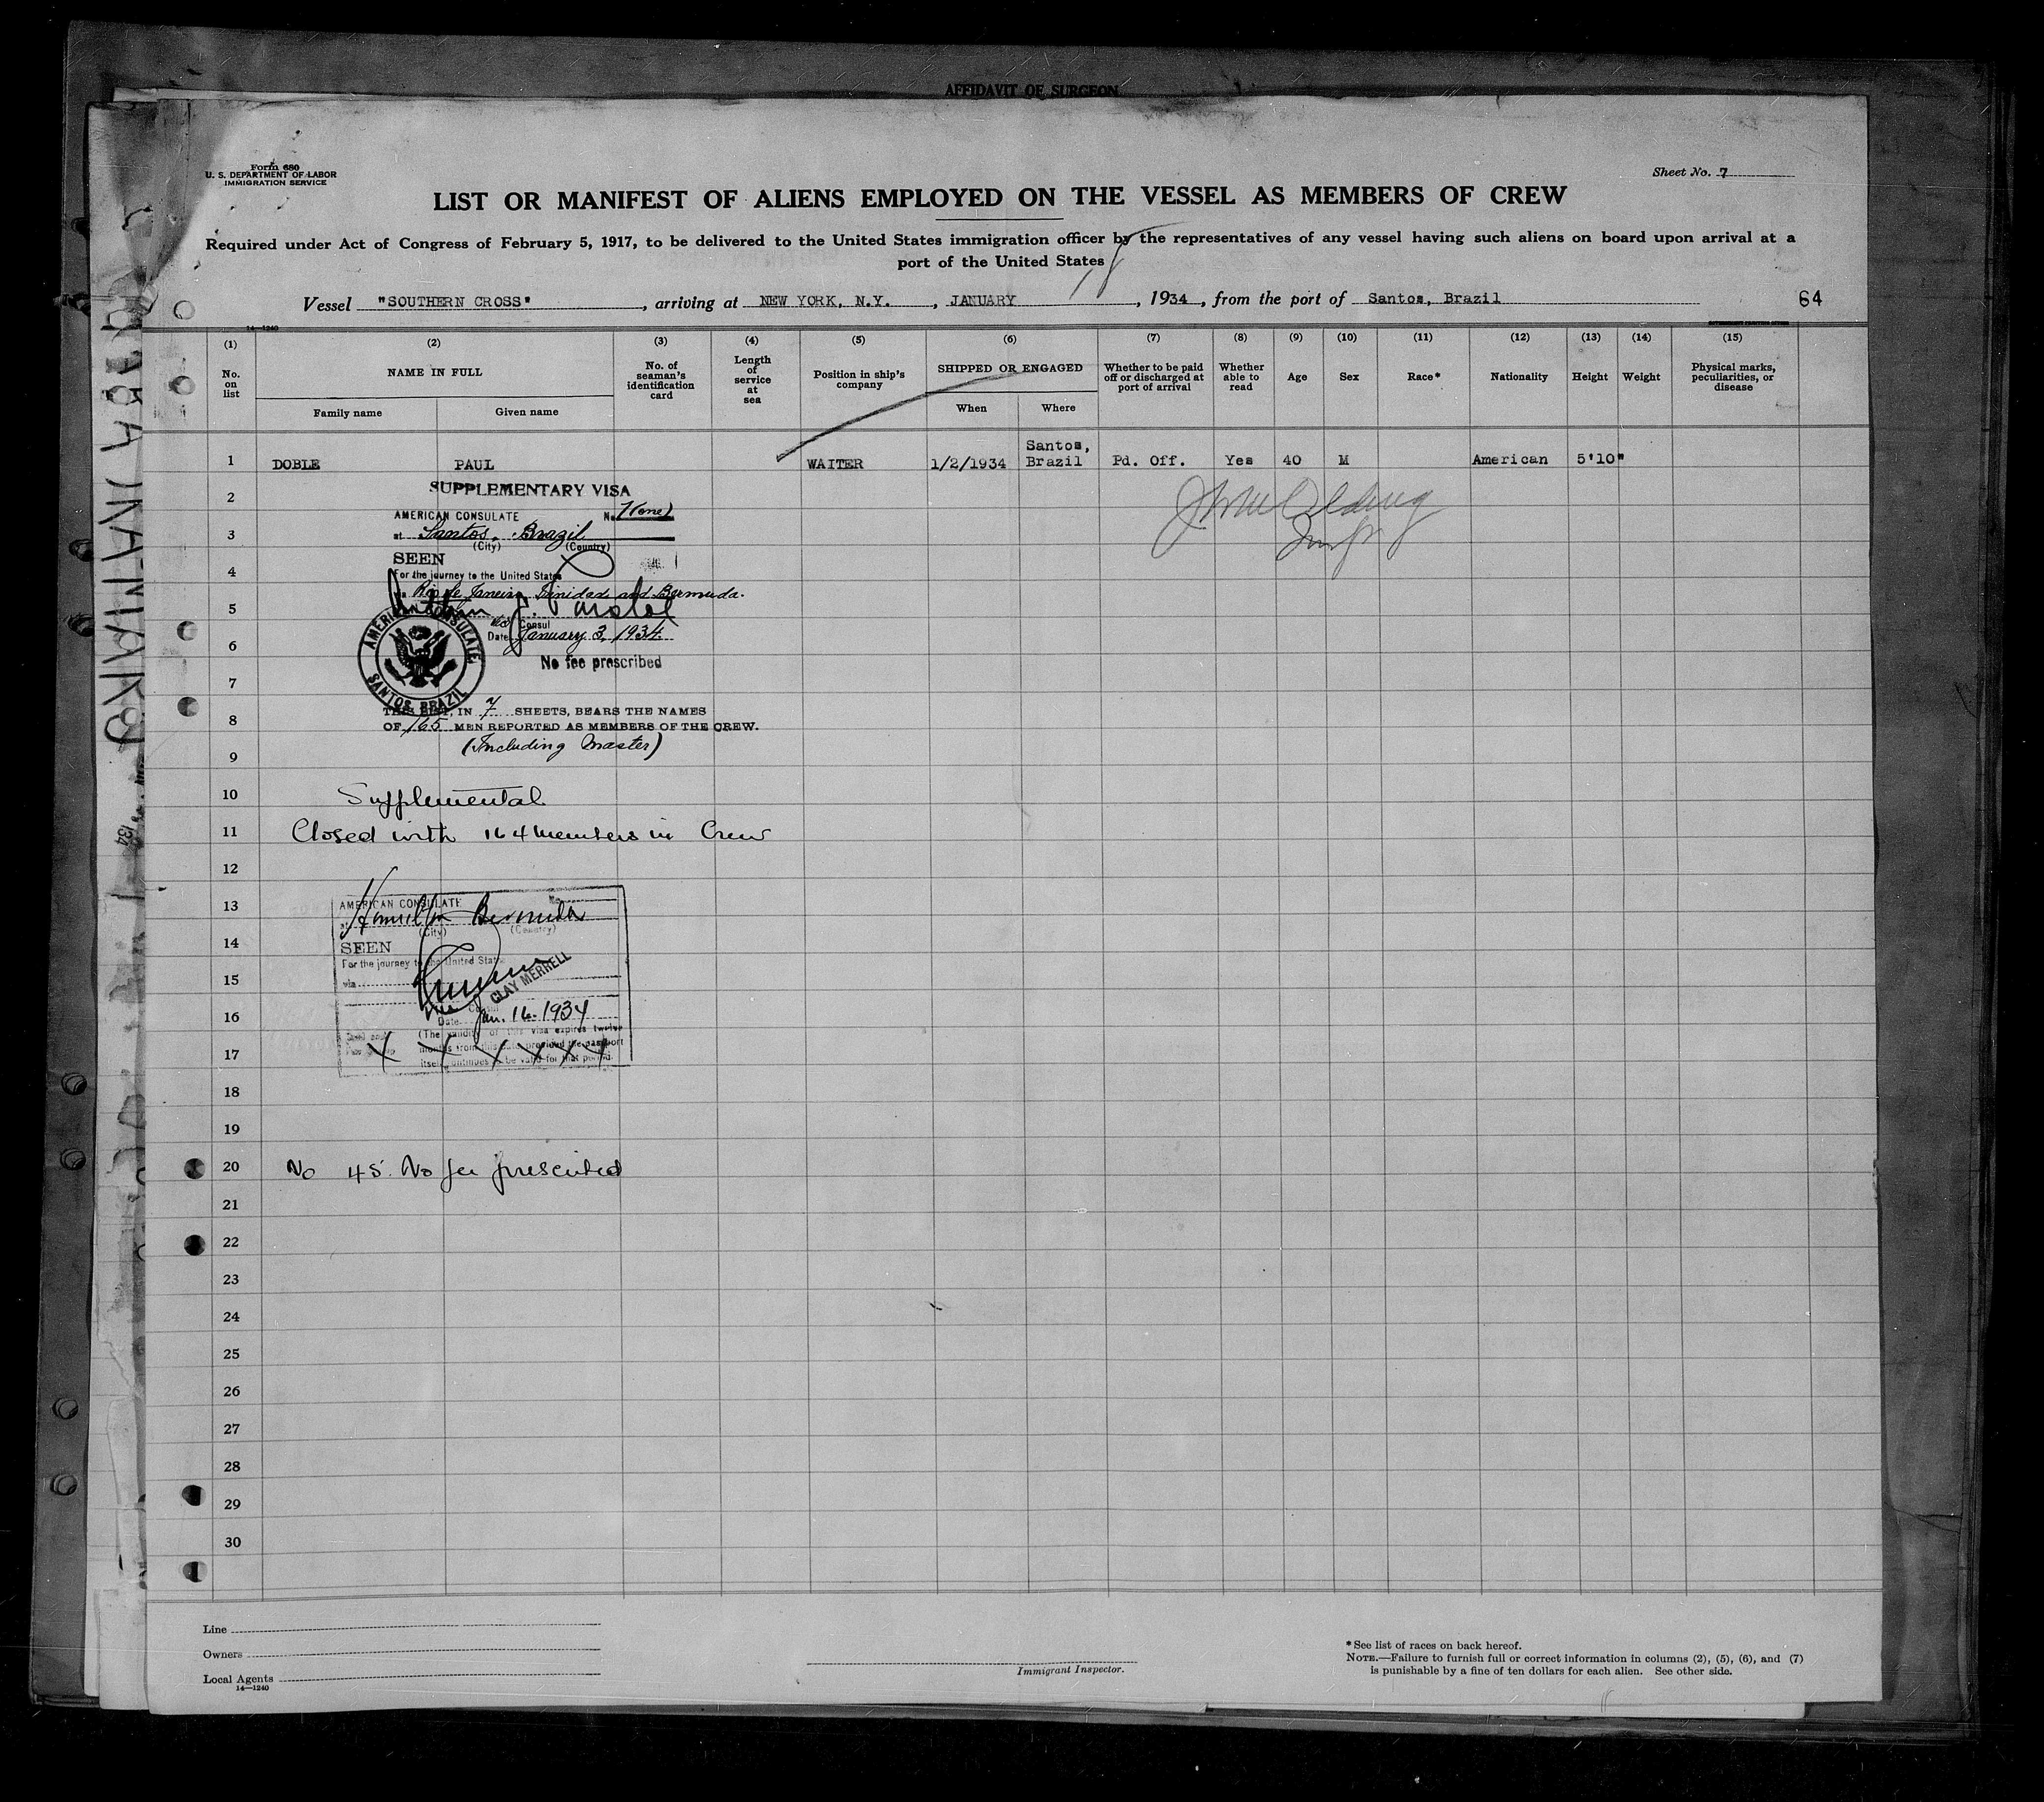 AFFIDAVIT OF SURGEON
Form 680
U. S. DEPARTMENT OF LABOR
IMMIGRATION SERVICE
Sheet No. 7
LIST OR MANIFEST OF ALIENS EMPLOYED ON THE VESSEL AS MEMBERS OF CREW
Required under Act of Congress of February 5, 1917, to be delivered to the United States immigration officer by the representatives of any vessel having such aliens on board upon arrival at a
port of the United States
Vessel "SOUTHERN CROSS", arriving at NEW YORK, N.Y., JANUARY 18, 1934, from the port of Santos, Brazil 64
14—1240
(1) (2) (3) (4) (5) (6) (7) (8) (9) (10) (11) (12) (13) (14) (15)
No. on list
NAME IN FULL
Family name Given name
No. of seaman's identification card
Length of service at sea
Position in ship's company
SHIPPED OR ENGAGED
When Where
Whether to be paid off or discharged at port of arrival
Whether able to read
Age
Sex
Race*
Nationality
Height
Weight
Physical marks, peculiarities, or disease
1 DOBLE PAUL WAITER 1/2/1934 Santos, Brazil Pd. Off. Yes 40 M American 5'10"
2
SUPPLEMENTARY VISA
AMERICAN CONSULATE No. 1 (one)
3
at Santos, Brazil
(City) (Country)
SEEN
4
For the journey to the United States
via Rio de Janeiro, Trinidad and Bermuda.
5
Consul
6
Date January 3, 1934
AMERICAN CONSULATE
SANTOS, BRAZIL
No fee prescribed
7
THIS LIST, IN 7 SHEETS, BEARS THE NAMES
8
OF 165 MEN REPORTED AS MEMBERS OF THE CREW.
(Including Master)
9
10 Supplemental
11 Closed with 164 members in Crew
12
13
AMERICAN CONSULATE No.
at Hamilton Bermuda
(City) (Country)
14
SEEN
For the journey to the United States
15
via
CLAY MERRELL
16
Consul
Date Jan. 16 1934
(The validity of this visa expires twelve
17
months from this date provided the passport
itself continues to be valid for that period.
X X X X X X
18
19
20 No 45. No fee prescribed
21
22
23
24
25
26
27
28
29
30
Line
Owners
Local Agents
14—1240
Immigrant Inspector.
*See list of races on back hereof.
NOTE.—Failure to furnish full or correct information in columns (2), (5), (6), and (7)
is punishable by a fine of ten dollars for each alien. See other side.